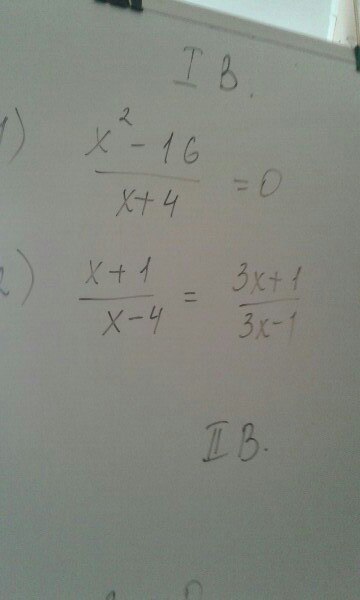 I В.
1) x² - 16 / x + 4 = 0
2) x + 1 / x - 4 = 3x + 1 / 3x - 1
II В.